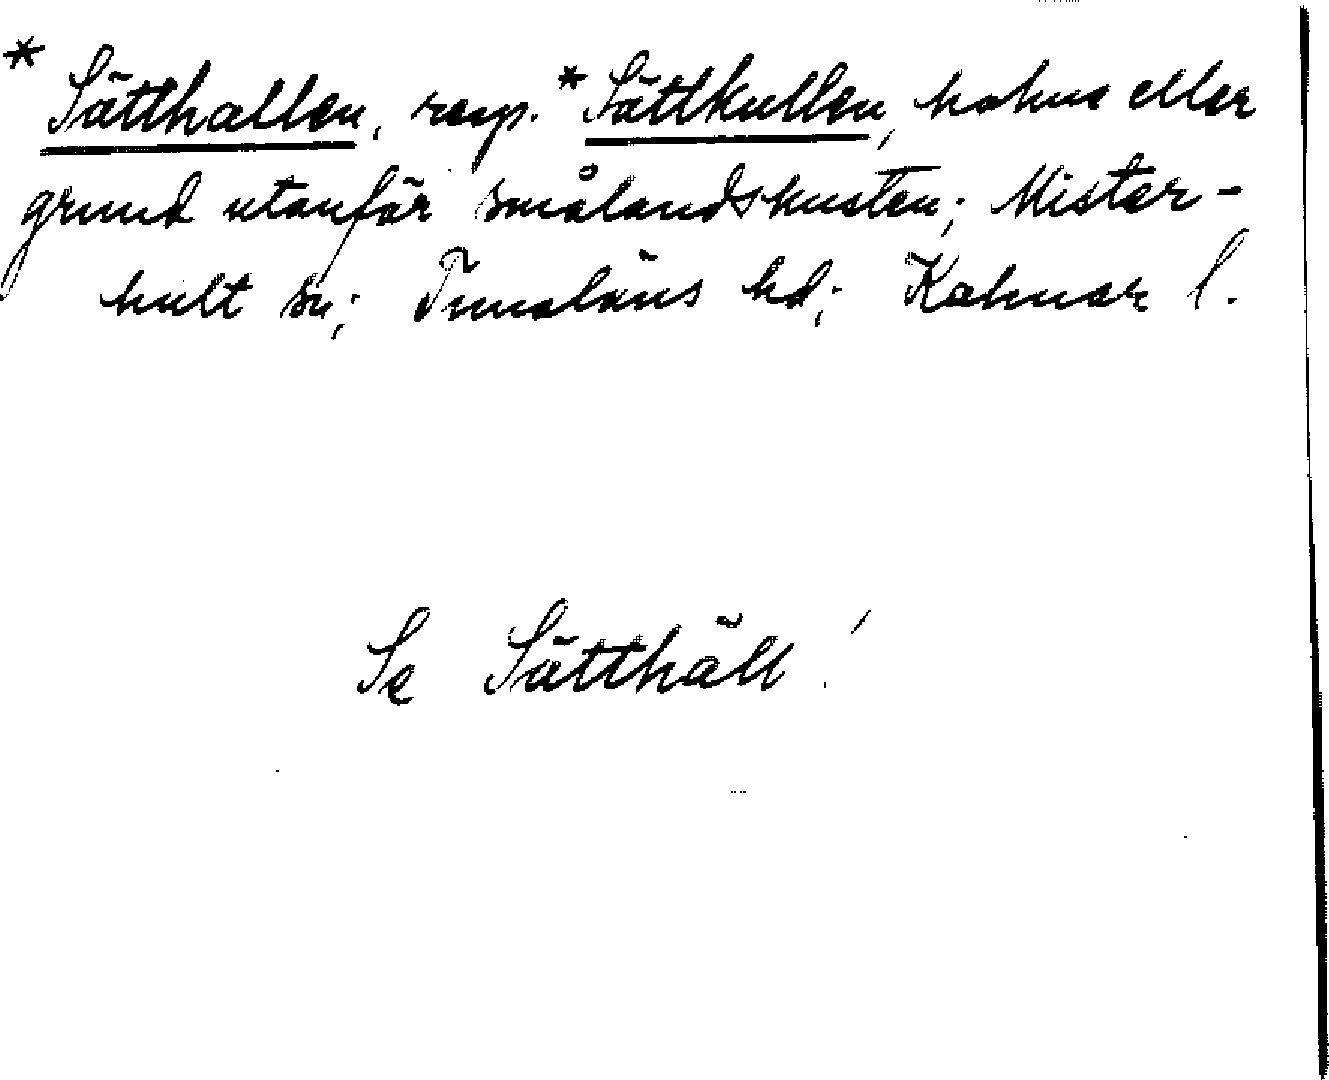 * Sätthallen, resp. * Sättkullen, holme eller
grund utanför smålandskusten; Mister-
hult sn; Tunaläns hd; Kalmar l.
Se Sätthäll!